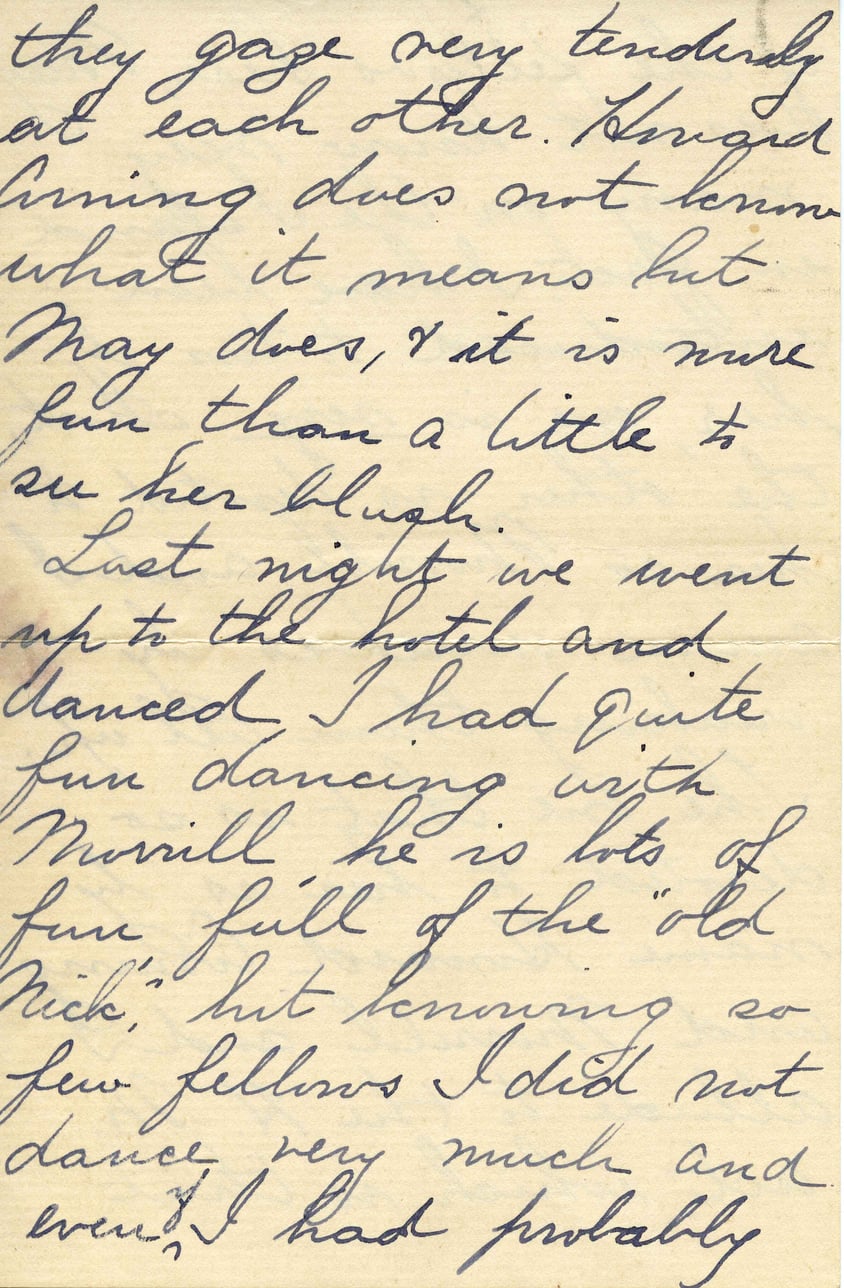 they gaze very tenderly
at each other. Howard
does not know
what it means but
May does, & it is more
fun than a little to
see her blush.
Last night we went
up to the hotel and
danced I had quite
fun dancing with
Morrill, he is lots of
fun, full of the "old
Nick," but knowing so
few fellows I did not
dance very much and
even if I had probably